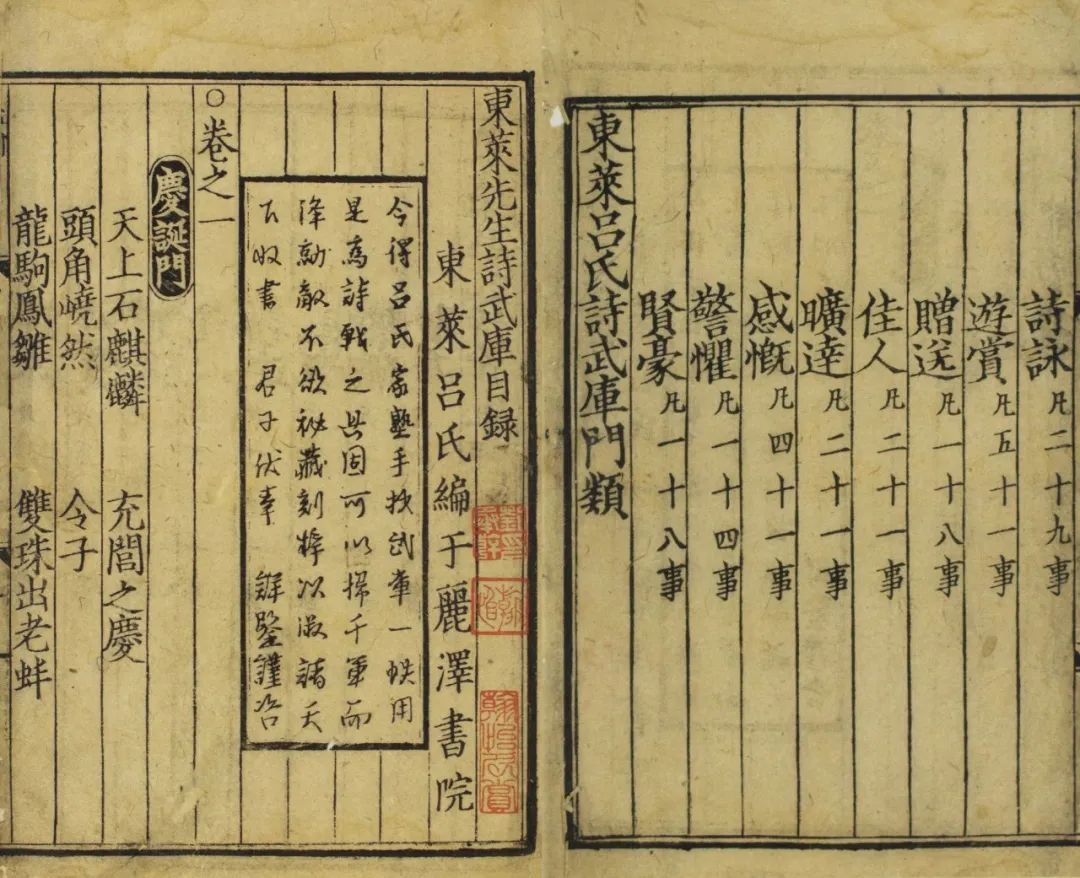 詩詠凡二十九事
遊賞凡五十一事
贈送凡一十八事
佳人凡二十一事
曠逹凡二十一事
感慨凡四十一事
警懼凡一十四事
賢豪凡一十八事
東萊呂氏詩武庫門類
東萊先生詩武庫目録
東萊呂氏編于麗澤書院
今得呂氏家塾手抄武庫一帙用
是為詩戰之具固可以掃千軍而
降勍敵不欲秘藏刻梓以淑諸天
下收書 君子伏幸 詳鑒謹咨
○卷之一
慶誕門
天上石麒麟 充閭之慶
頭角嶢然 令子
龍駒鳳雛 雙珠出老蚌